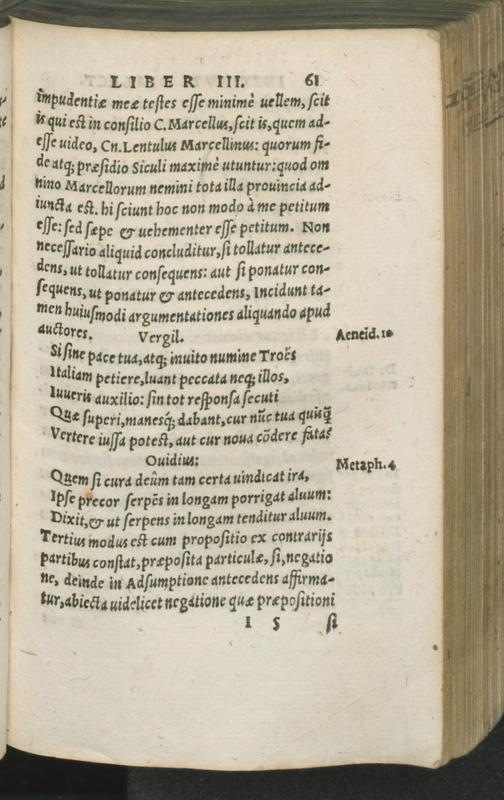 LIBER III. 61
impudentiæ meæ testes esse minimè uellem, scit
is qui est in consilio C. Marcellus, scit is, quem ad-
esse uideo, Cn. Lentulus Marcellinus: quorum fi-
de atq; præsidio Siculi maximè utuntur: quod om
nino Marcellorum nemini tota illa prouincia ad-
iuncta est. hi sciunt hoc non modo à me petitum
esse: sed sæpe & uehementer esse petitum. Non
necessario aliquid concluditur, si tollatur antece-
dens, ut tollatur consequens: aut si ponatur con-
sequens, ut ponatur & antecedens, Incidunt ta-
men huiusmodi argumentationes aliquando apud
auctores. Vergil. Aeneid. 10
Si sine pace tua, atq; inuito numine Troës
Italiam petiere, luant peccata neq; illos,
Iuueris auxilio: sin tot responsa secuti
Quæ superi, manesq; dabant, cur nūc tua quisq̃
Vertere iussa potest, aut cur noua cōdere fatas
Ouidius: Metaph. 4
Quem si cura deûm tam certa uindicat ira,
Ipse precor serpēs in longam porrigat aluum:
Dixit, & ut serpens in longam tenditur aluum.
Tertius modus est cum propositio ex contrarijs
partibus constat, præposita particulæ, si, negatio
ne, deinde in Adsumptione antecedens affirma-
tur, abiecta uidelicet negatione quæ præpositioni
I 5 si